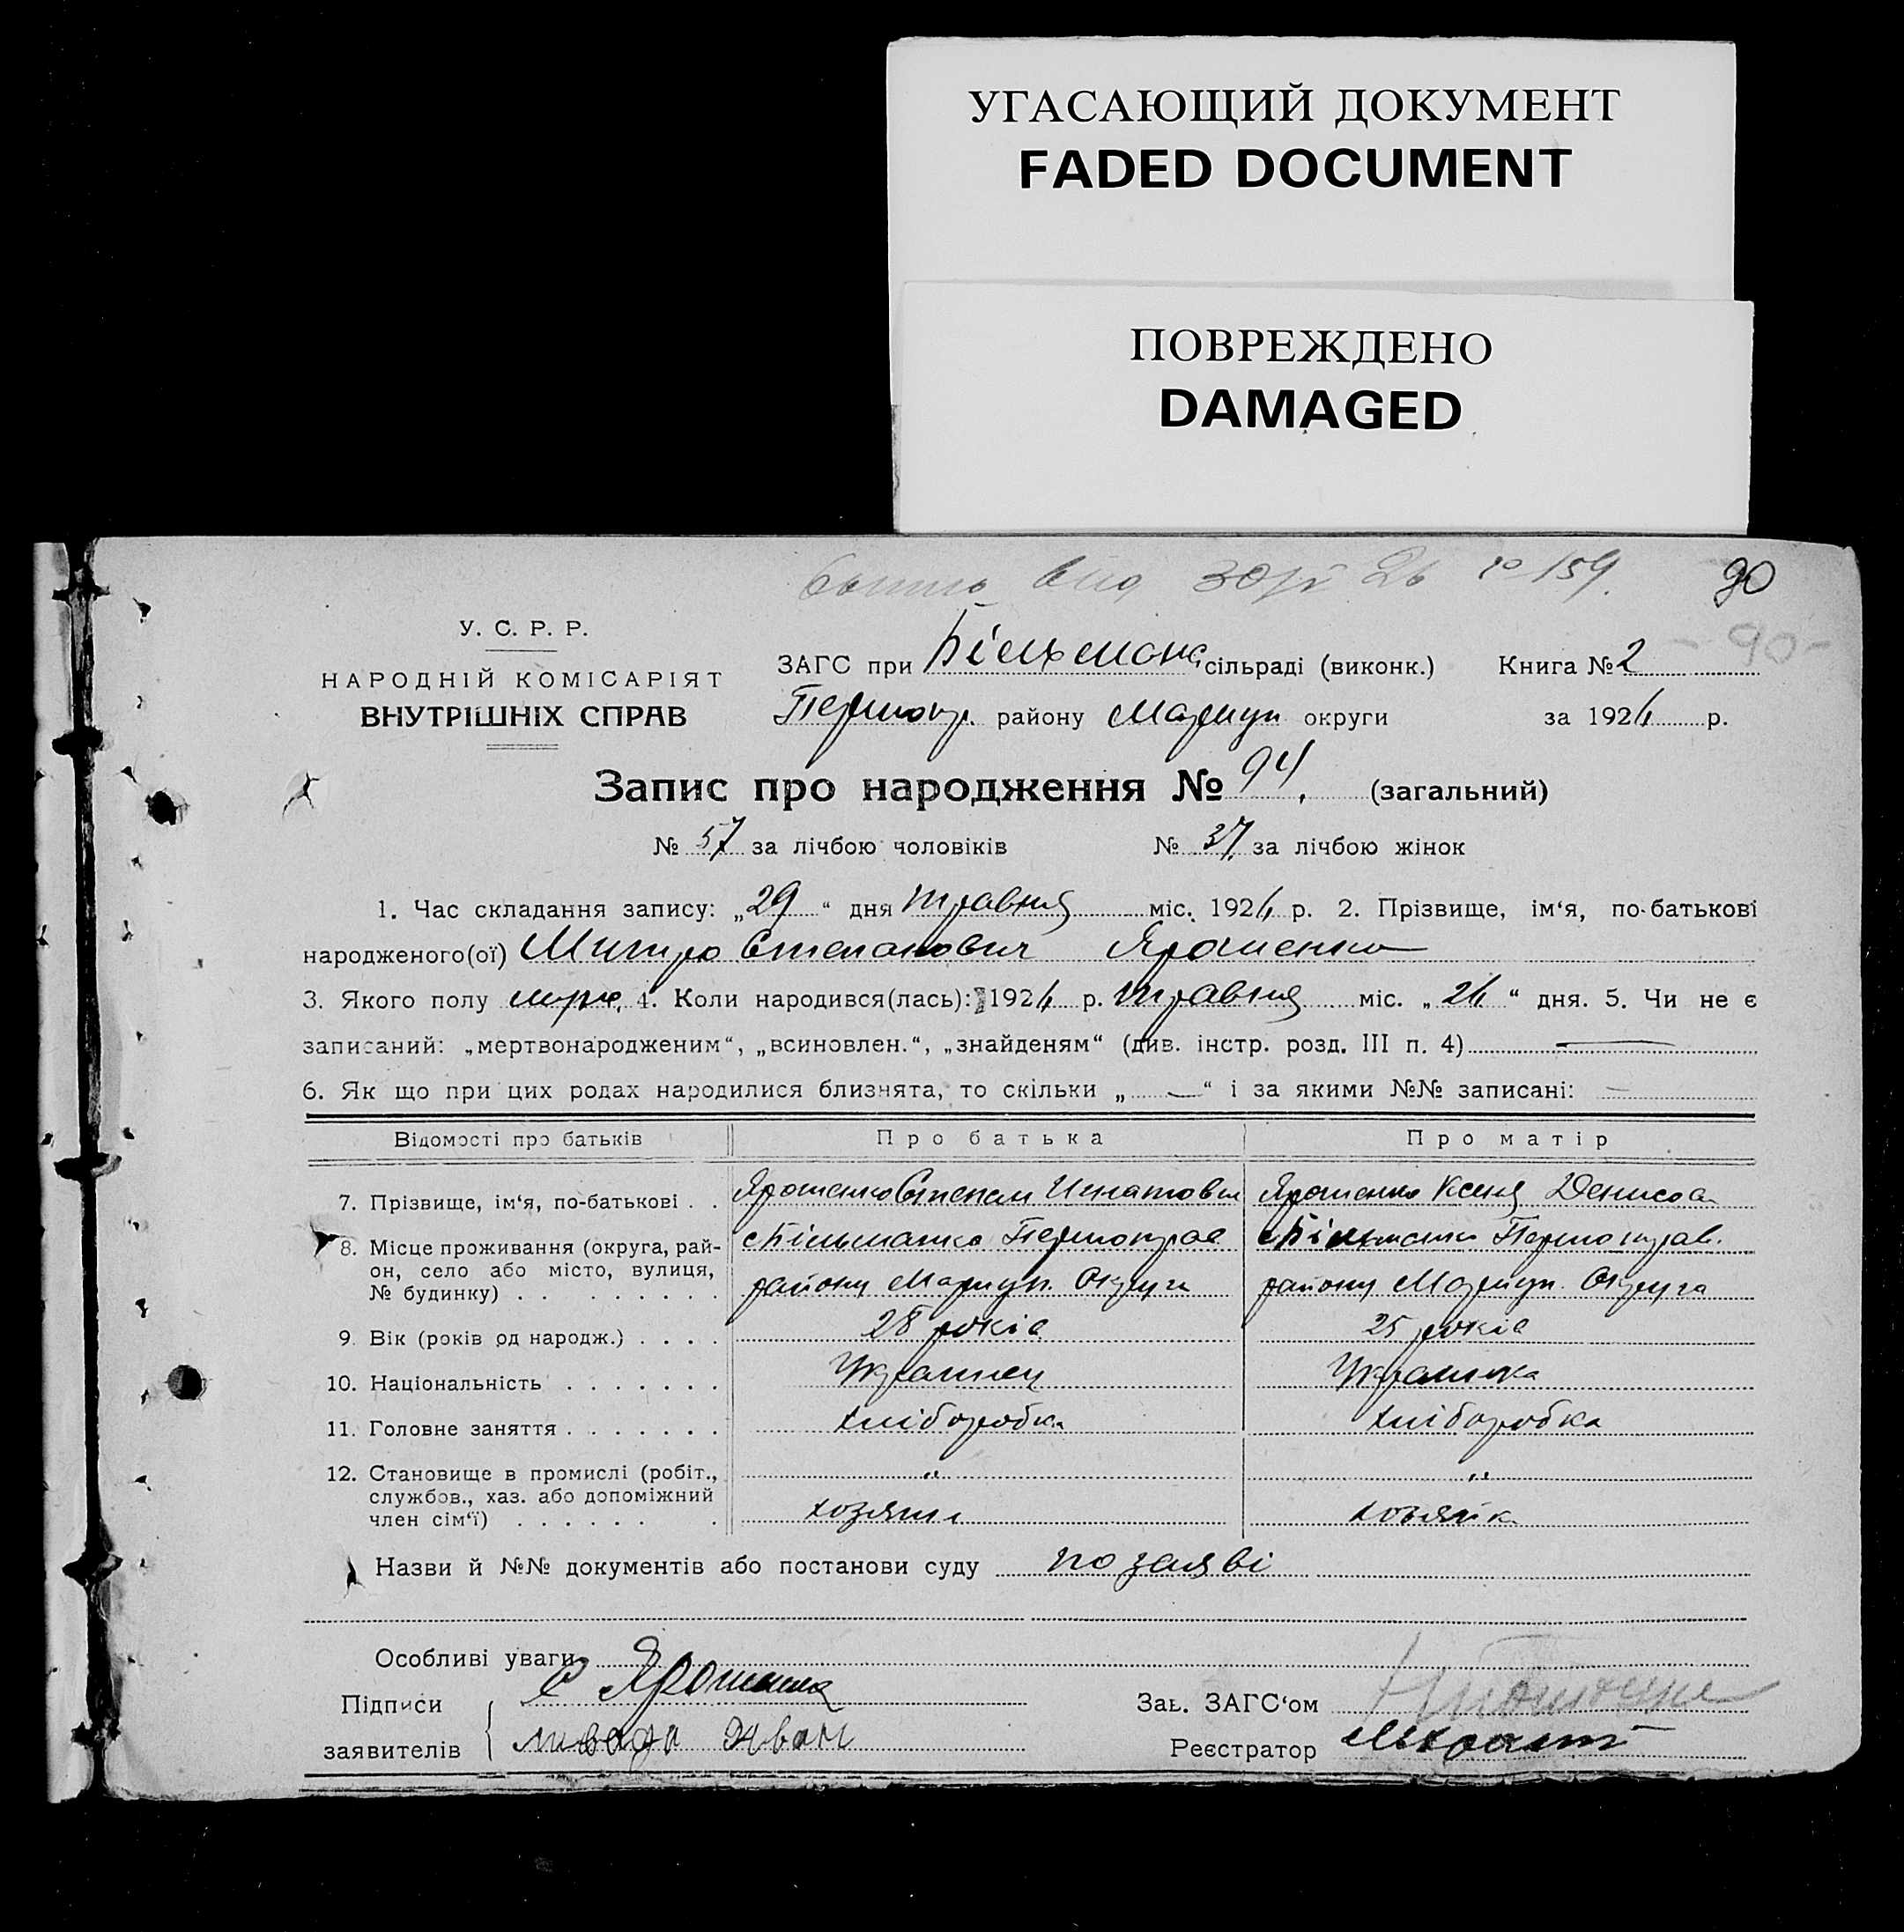 УГАСАЮЩИЙ ДОКУМЕНТ
FADED DOCUMENT
ПОВРЕЖДЕНО
DAMAGED
26 № 159. 90
- 90 -
У. С. Р. Р.
НАРОДНІЙ КОМІСАРІЯТ
ВНУТРІШНІХ СПРАВ
ЗАГС при Більманс сільраді (виконк.) Книга № 2
Першопр. району Маріуп округи за 1926 р.
Запис про народження № 94. (загальний)
№ 57 за лічбою чоловіків № 37 за лічбою жінок
1. Час складання запису: „29“ дня травня міс. 1926 р. 2. Прізвище, ім‘я, по-батькові
народженого(ої) Митро Степанович Ярошенко
3. Якого полу муж. 4. Коли народився(лась): 1926 р. травня міс. „26“ дня. 5. Чи не є
записаний: „мертвонародженим“, „всиновлен.“, „знайденям“ (див. інстр. розд. III п. 4) —
6. Як що при цих родах народилися близнята, то скільки „—“ і за якими №№ записані: —
Відомості про батьків Про батька Про матір
7. Прізвище, ім‘я, по-батькові . . Ярошенко Степан Игнатович Ярошенко Ксеня Денисов
8. Місце проживання (округа, рай- с Більманка Першоправ с Більманка Першоправ.
он, село або місто, вулиця, району Маріуп. Округи району Маріуп. Округа
№ будинку)
9. Вік (років од народж.) . . . . 28 років 25 років
10. Національність . . . . . . . Украинец Украинка
11. Головне заняття . . . . . . . хліборобка хліборобка
12. Становище в промислі (робіт., „ „
службов., хаз. або допоміжний
член сім‘ї) . . . . . . . хозяин хозяйка
Назви й №№ документів або постанови суду по заяві
Особливі уваги
Підписи С Ярошенко Зав. ЗАГС‘ом
заявителів Иван Реєстратор